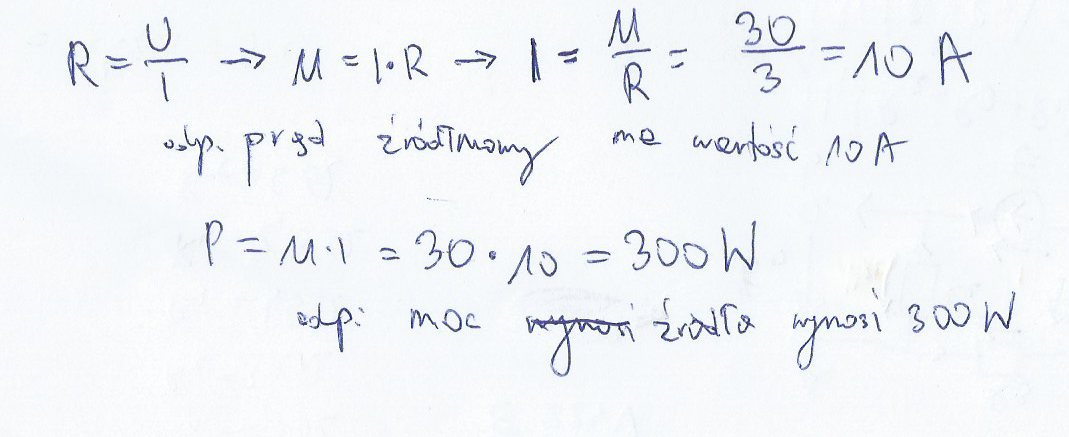 R = U/I → U = I·R → I = U/R = 30/3 = 10 A
odp. prąd źródłowy ma wartość 10 A
P = U·I = 30·10 = 300 W
odp: moc wynosi źródła wynosi 300 W